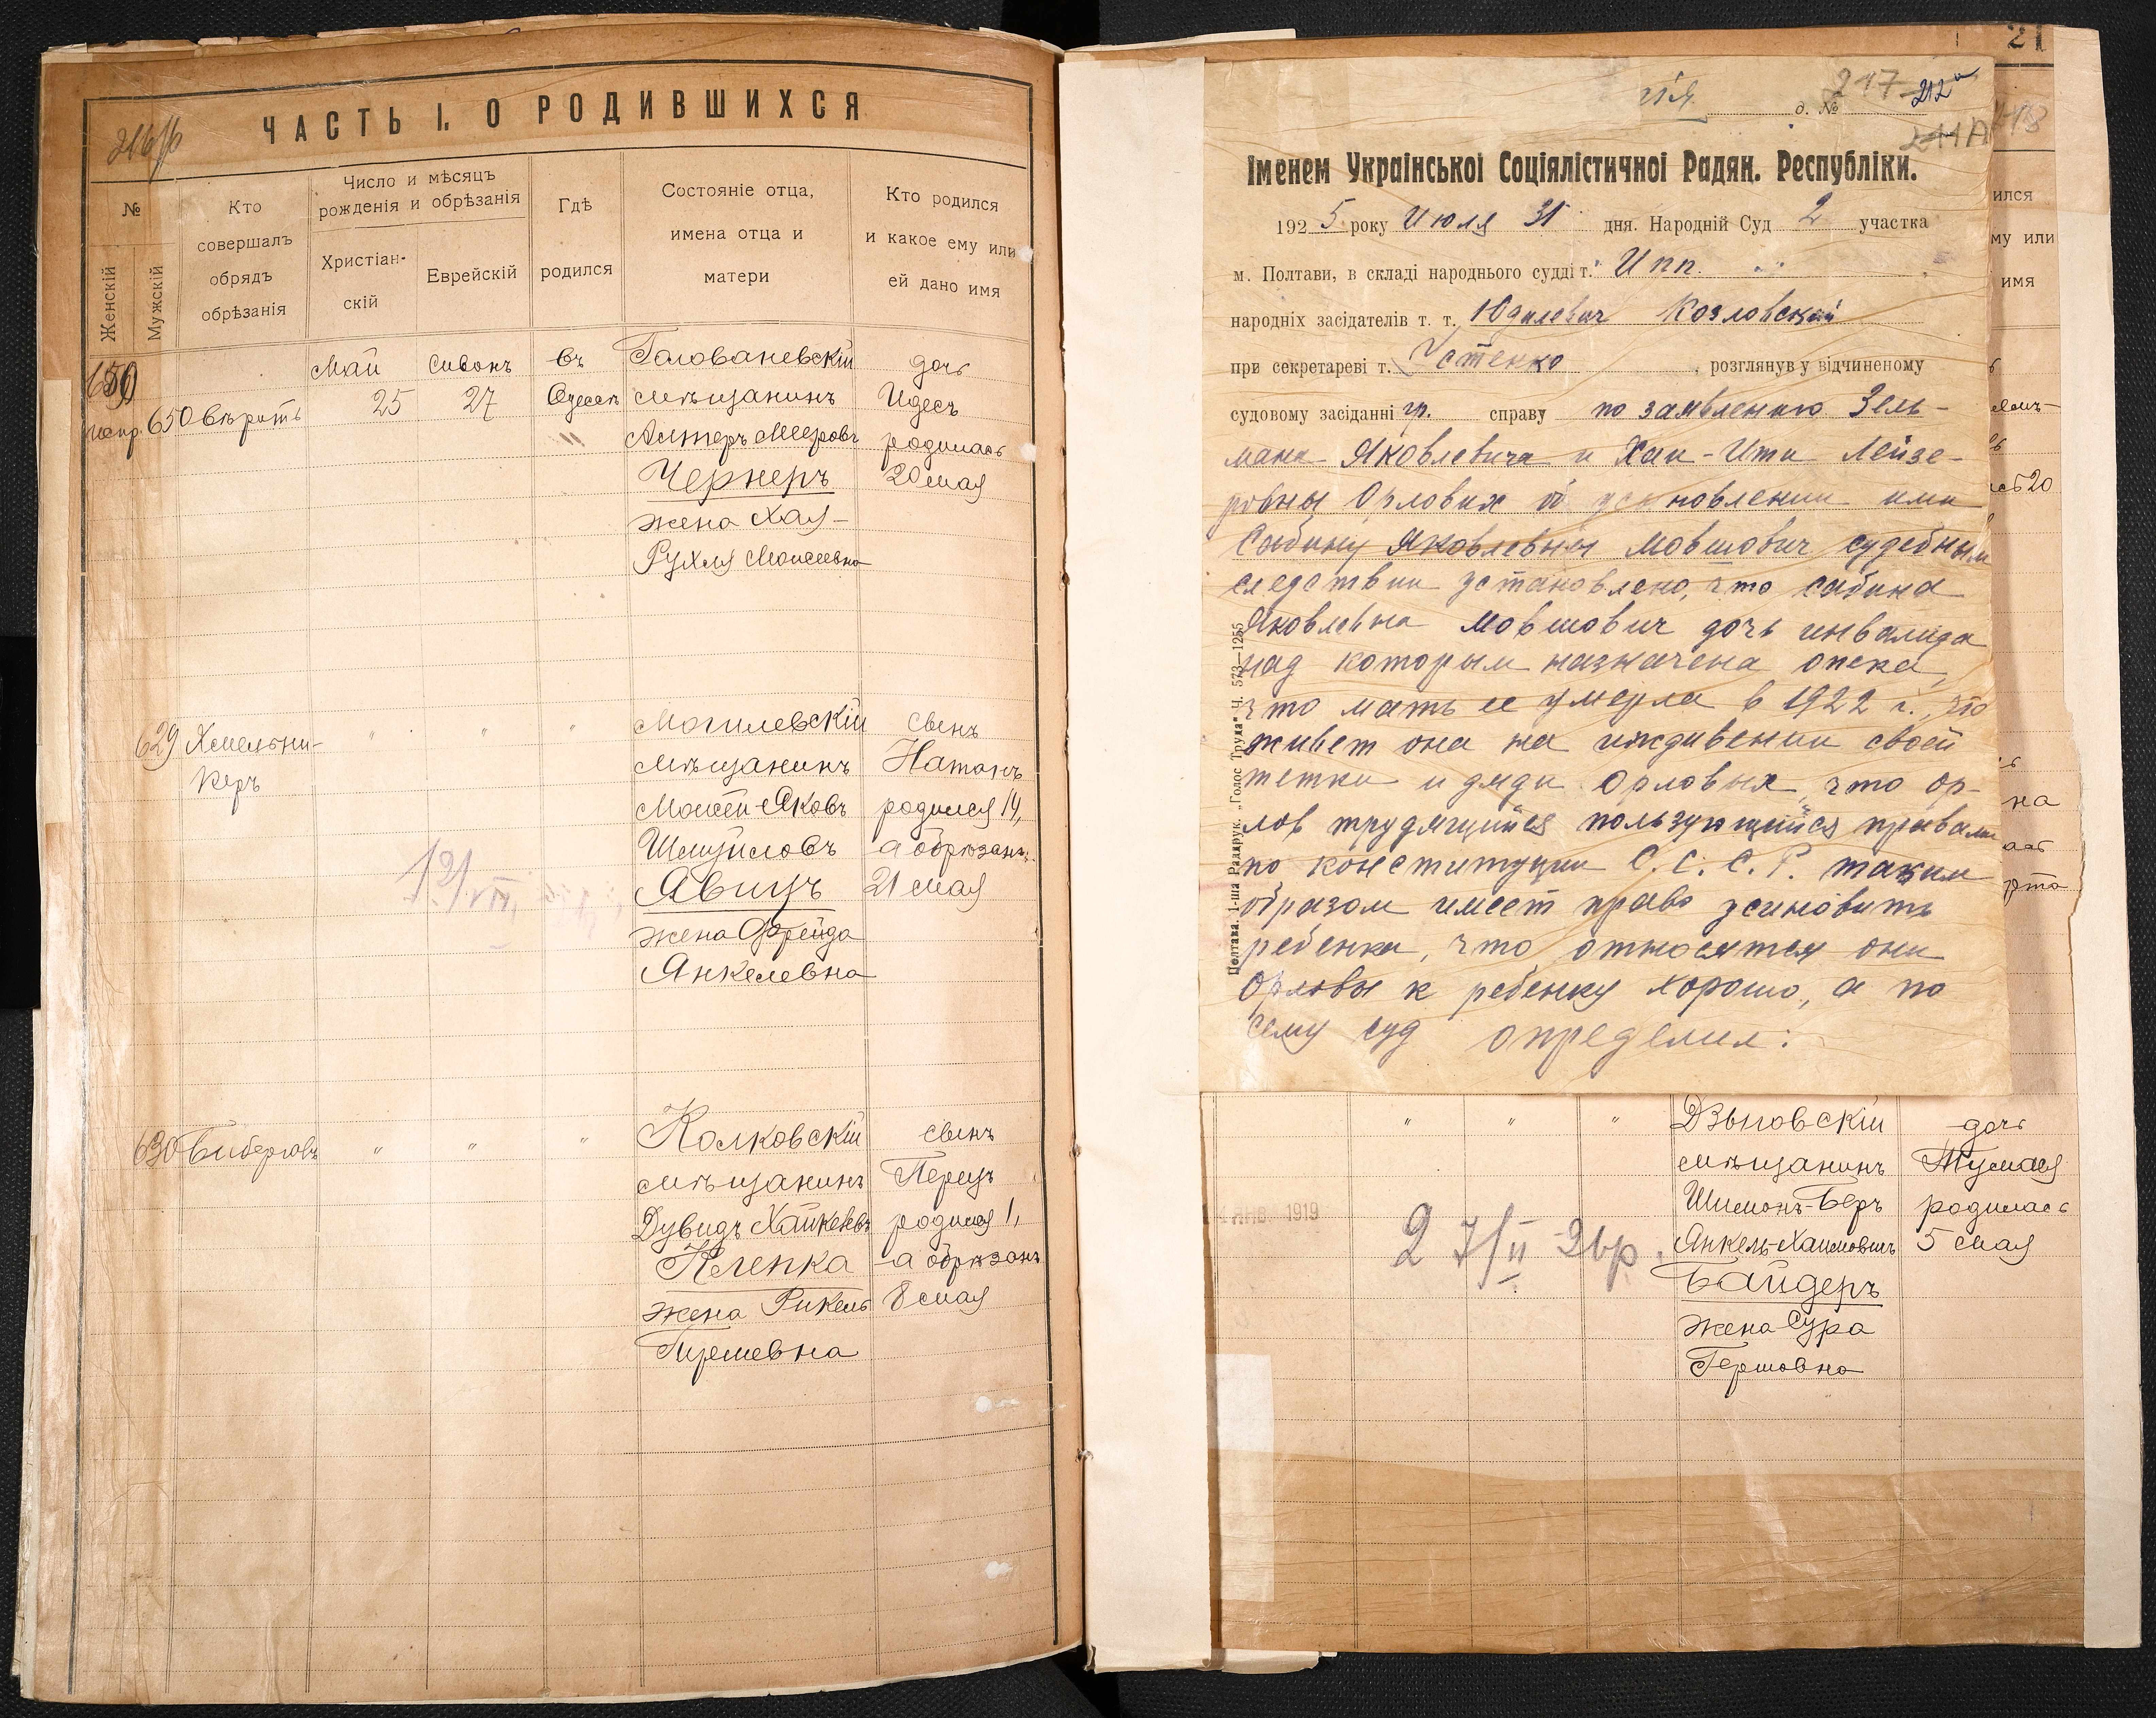 216 об
ЧАСТЬ I. О РОДИВШИХСЯ
№
Женскій
Мужскій
Кто
совершалъ
обрядъ
обрѣзанія
Число и мѣсяцъ
рожденія и обрѣзанія
Христіан-
скій
Еврейскій
Гдѣ
родился
Состояніе отца,
имена отца и
матери
Кто родился
и какое ему или
ей дано имя
650
Май
Сивонъ
въ
Голованевскій
дочь
испр. 650 вѣрить
25
27
Одессѣ
мѣщанинъ
Идесъ
Алтеръ Мееровъ
родилась
Чернеръ
20 мая
жена Хая-
Рухля Моисеевна
629
Хмельни-
керъ
"
"
"
Могилевскій
сынъ
мѣщанинъ
Натанъ
Моисей-Яковъ
родился 14,
Шмуиловъ
а обрѣзанъ
Явицъ
21 мая
жена Фрейда
Янкелевна
630
"
"
"
Колковскій
сынъ
мѣщанинъ
Перецъ
Дувидъ
родился 1,
Клепка
а обрѣзанъ
жена Рикель
8 мая
217
212а
211А
218
21
д. №
Іменем Української Соціялістичної Радян. Республіки.
1925 року Июля 31 дня. Народній Суд 2 участка
м. Полтави, в складі народнього судді т. Ипп.
народніх засідателів т. т. Юдилевич Козловский
при секретареві т. Устенко, розглянув у відчиненому
судовому засіданні гр. справу по заявлению Зель-
мана Яковлевича и Хаи-Ити Лейзе-
ровны Орловых об усыновлении ими
Сабину Яковлевны Мовшович судебным
следствии установлено, что Сабина
Яковлевна Мовшович дочь инвалида
над которым назначена опека,
что мать ее умерла в 1922 г., что
живет она на иждивении своей
тетки и дяди Орловых, что Ор-
лов трудящийся пользующийся правами
по конституции С.С.С.Р. таким
образом имеет право усиновить
ребенка, что относятся они
Орловы к ребенку хорошо, а по
сему суд определил:
Полтава. 1-ша Раддрук. „Голос Труда" Ч. 573—1255
ился
му или
имя
"
"
"
Дзыговскій
дочь
мѣщанинъ
Шимонъ-Беръ
родилась
Янкель-Хаимовичъ
5 мая
Байдеръ
жена Сура
Гершовна
ЯНВ 1919
27/II 2 вр.